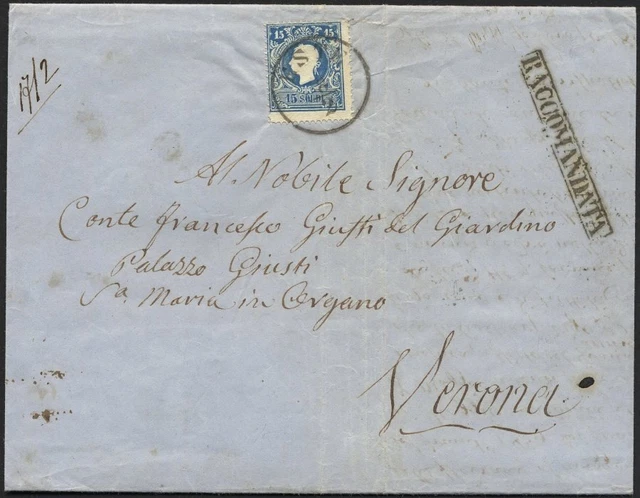 17/2
15 15
15 SOLDI
RACCOMANDATA
Al Nobile Signore
Conte Francesco Giusti del Giardino
Palazzo Giusti
Sa. Maria in Organo
Verona